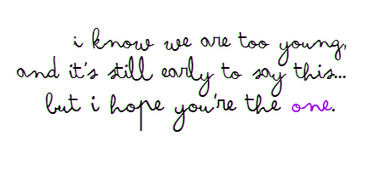 i know we are too young,
and it's still early to say this...
but i hope you're the one.